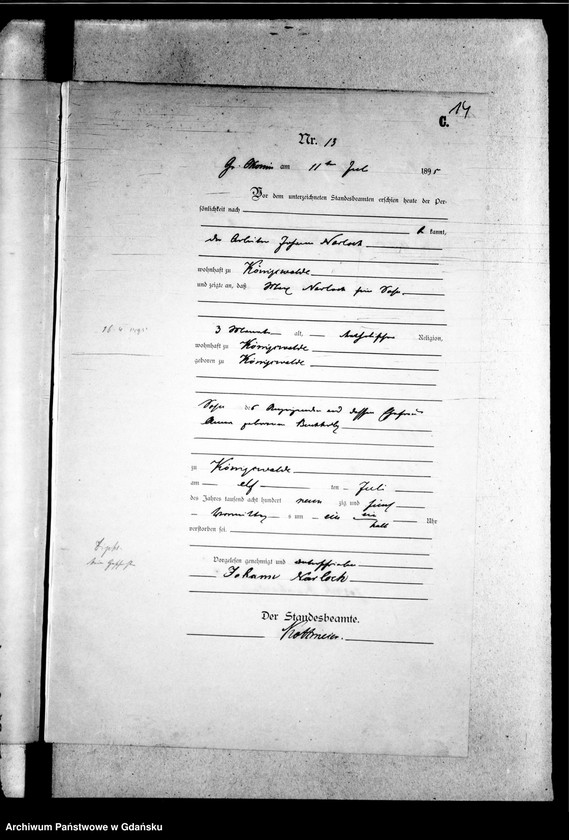 14
C.
Nr. 13
Gr. am 11ten Juli 1895
Vor dem unterzeichneten Standesbeamten erschien heute der Per-
sönlichkeit nach
kannt,
der Arbeiter Johann Narloch
wohnhaft zu Königswalde
und zeigte an, daß Max Narloch sein Sohn
3 Monate alt, katholischer Religion,
wohnhaft zu Königswalde
geboren zu Königswalde
Sohn des Anzeigenden und dessen Ehefrau
Anna geborenen
zu Königswalde
am elf ten Juli
des Jahres tausend acht hundert neun zig und fünf
Vormittags um ein Uhr
verstorben sei.
Vorgelesen, genehmigt und unterschrieben
Johann Narloch
Der Standesbeamte.
Kottmeier.
Archiwum Państwowe w Gdańsku